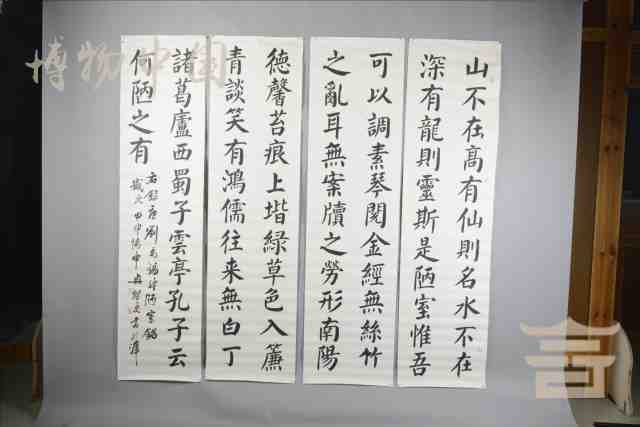 博物中国
山不在高有仙則名水不在
深有龍則靈斯是陋室惟吾
可以調素琴閱金經無絲竹
之亂耳無案牘之勞形南陽
德馨苔痕上堦綠草色入簾
青談笑有鴻儒往来無白丁
諸葛廬西蜀子雲亭孔子云
何陋之有
右錄唐劉禹錫詩陋室銘
歲次甲申